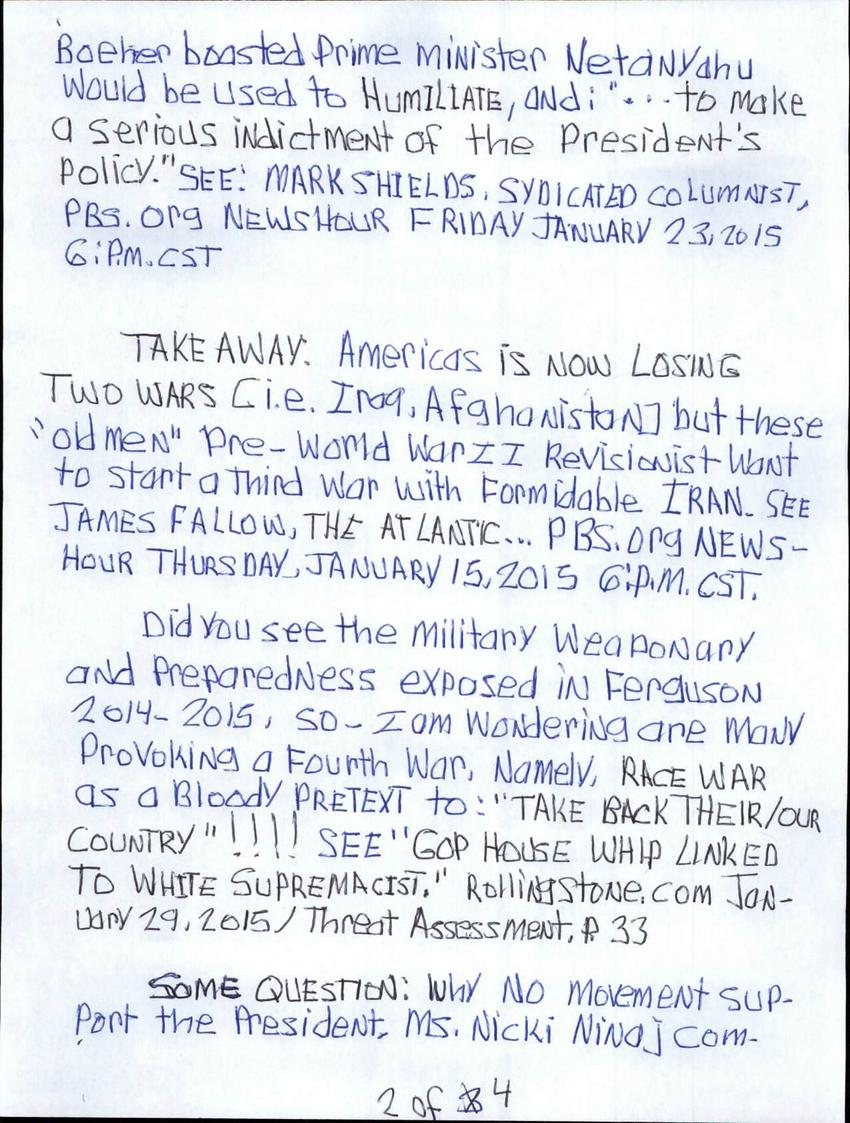 Boeher boasted Prime Minister Netanyahu
Would be used to HUMILIATE, and: "... to make
a serious indictment of the President's
Policy." SEE: MARK SHIELDS, SYDICATED COLUMNIST,
PBS.org NEWSHOUR FRIDAY JANUARY 23, 2015
6:P.M. CST
TAKE AWAY: Americas is NOW LOSING
TWO WARS [i.e. Iraq, Afghanistan] but these
"old men" Pre-World War II Revisionist Want
to start a Third War with Formidable IRAN. SEE
JAMES FALLOW, THE ATLANTIC... PBS.org NEWS-
HOUR THURSDAY, JANUARY 15, 2015 6:P.M. CST.
Did You see the Military Weaponary
and Preparedness exposed in Ferguson
2014-2015, so- I am Wondering are Many
Provoking a Fourth War, Namely, RACE WAR
as a Bloody PRETEXT to: "TAKE BACK THEIR/OUR
COUNTRY" !!!! SEE "GOP HOUSE WHIP LINKED
TO WHITE SUPREMACIST." Rollingstone.com Jan-
uary 29, 2015/Threat Assessment, P 33
SOME QUESTION: Why No Movement Sup-
Port the President. Ms. Nicki Ninaj com-
2 of 4